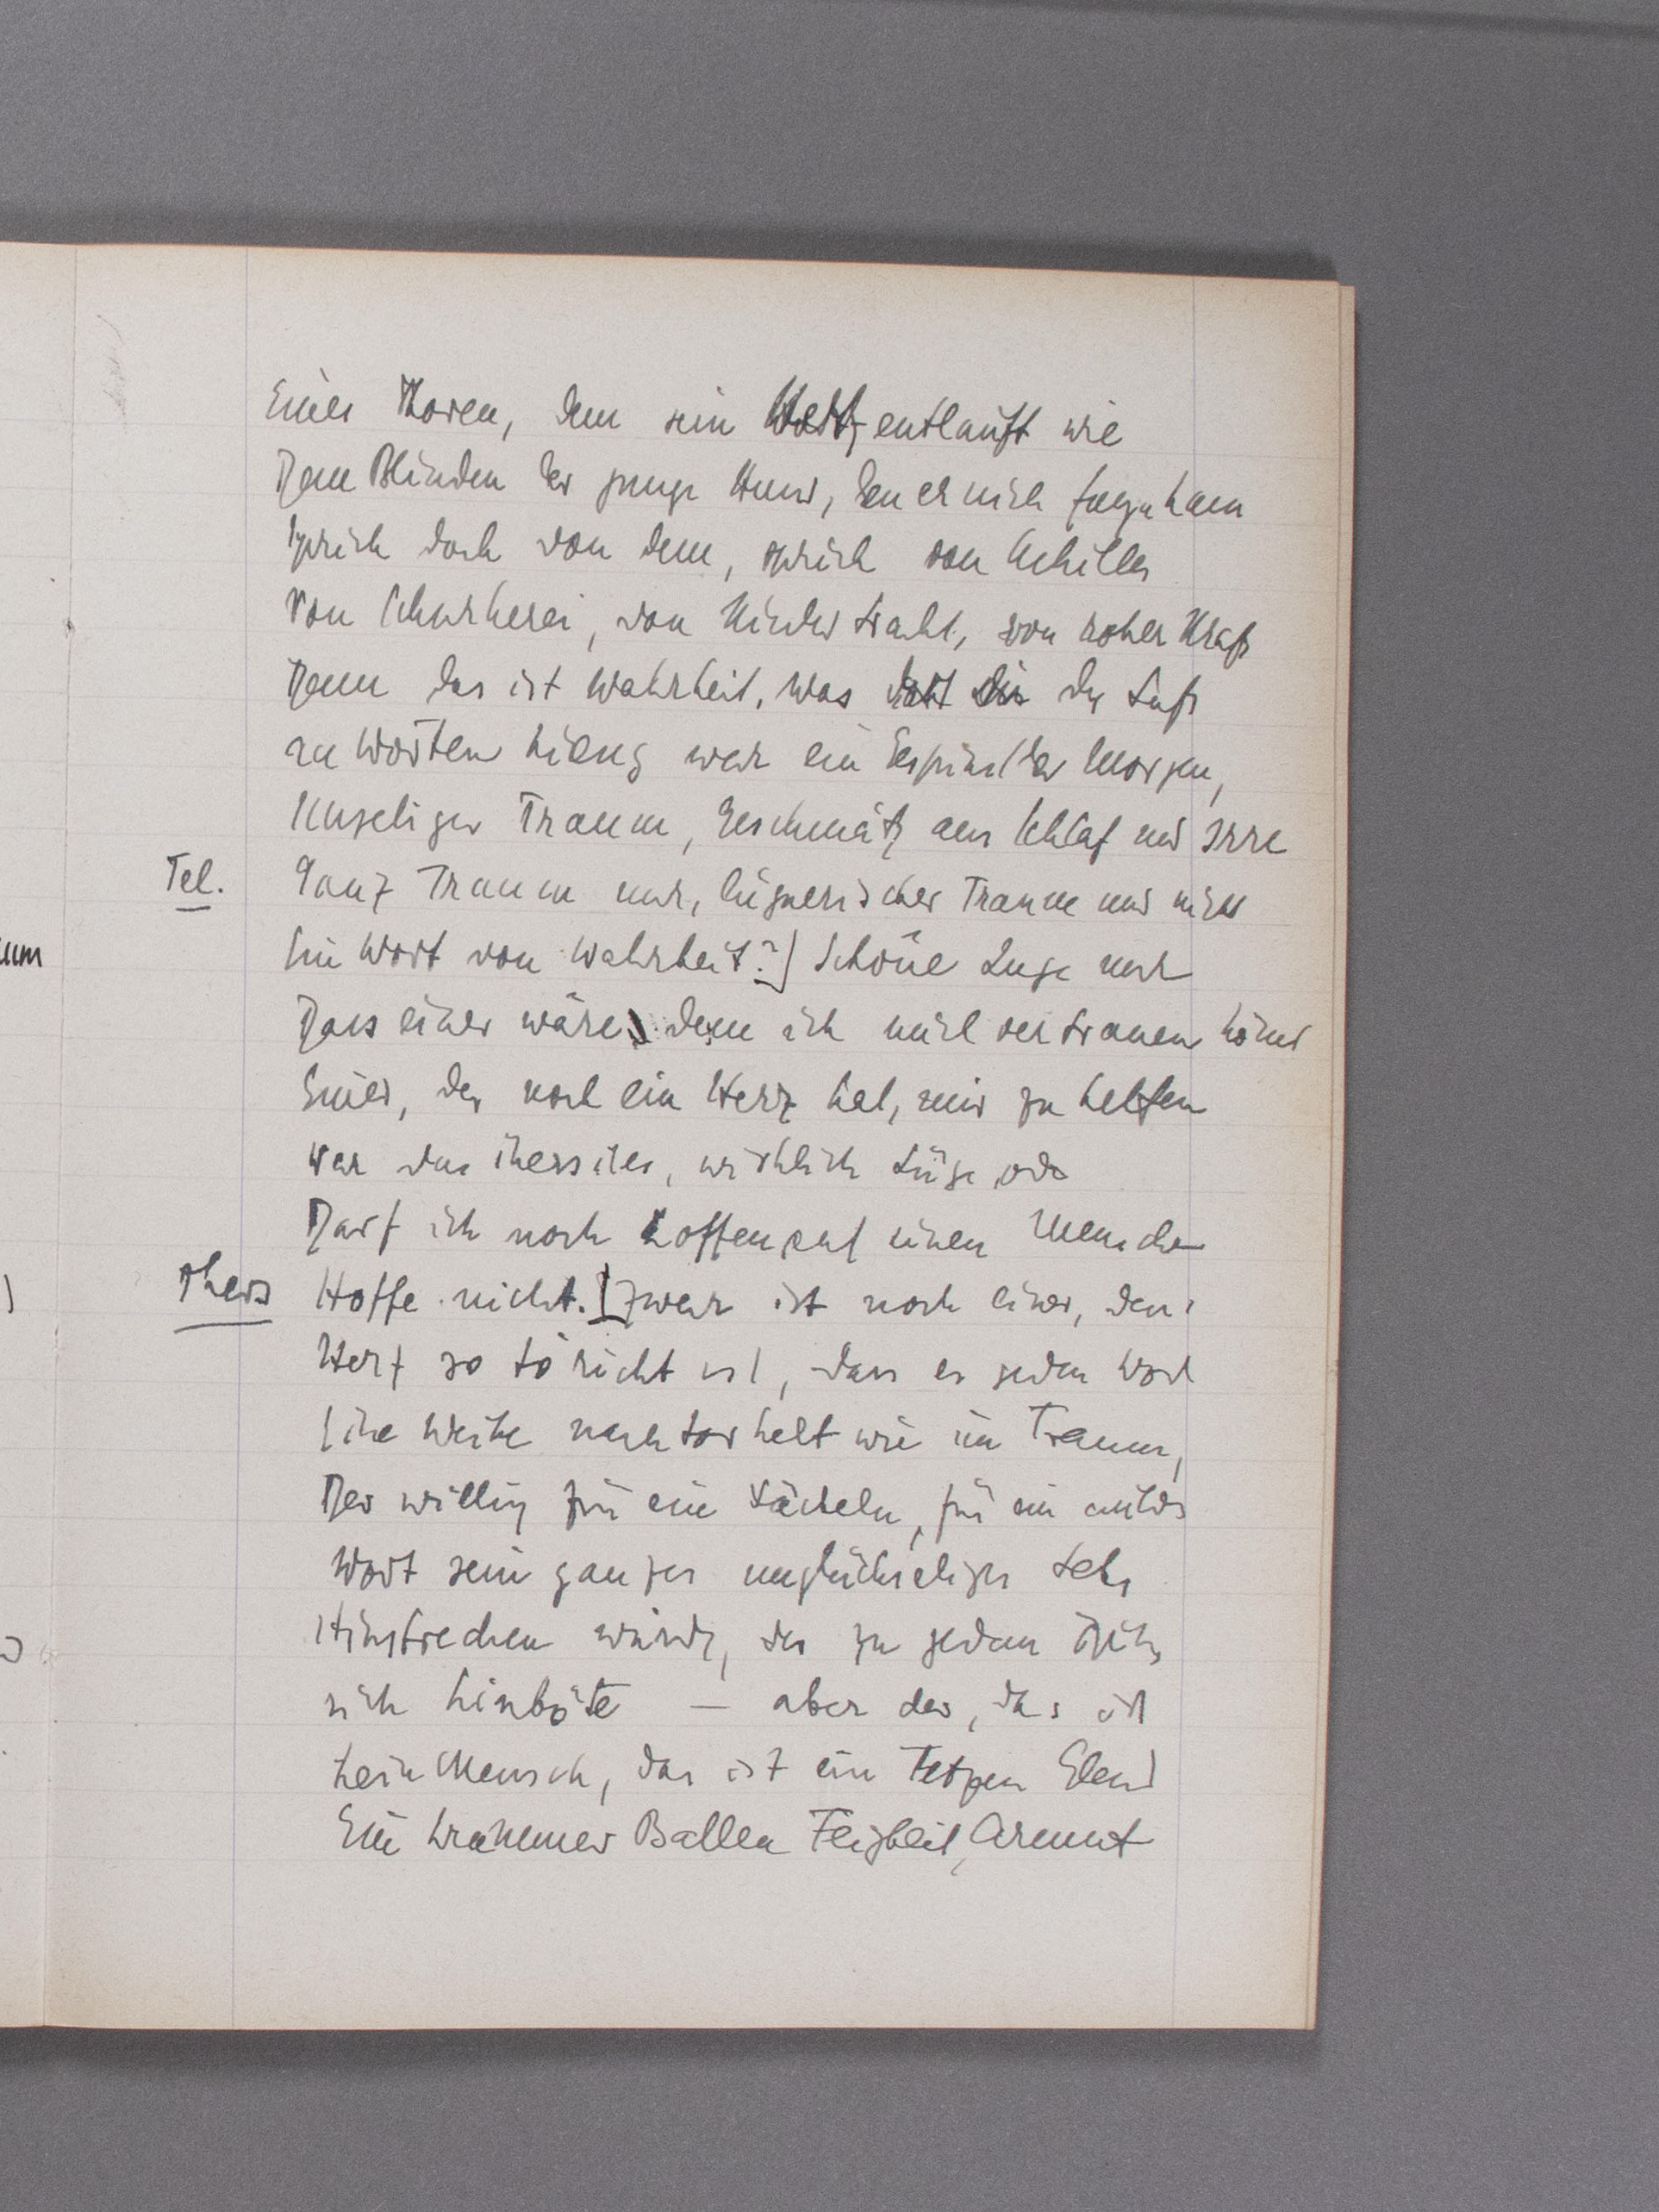 Eines Thoren, dem sein Wort entläuft wie
Dem Blinden der junge Hund, den er nicht
Sprich doch von dem, sprich von Achilles
Von Schurkerei, von Niedertracht, von roher Kraft
Denn das ist Wahrheit. Was dort die Luft
zu Worten hieng war ein Gespinst der Morgen,
Unseliger Traum, Geschwätz aus Schlaf und Irre
Tel. Ganz Traum nur, lügnerischer Traum und nicht
Ein Wort von Wahrheit?] Schöne Luge nur
Dass einer wäre dem ich mich vertrauen könnt
Einer, der noch ein Herz hat, mir zu helfen
War das thersites, wirklich Lüge, oder
Darf ich noch hoffen auf einen Menschen
Thers Hoffe nicht. [Zwar ist noch einer, den
Herz so töricht ist, dass er jeden Wort
Eine Weile nachtorkelt wie im Traum,
Der willig für ein Lächeln, für ein mildes
Wort sein ganzes unglückseliges Leben
Hinbrechen würde, der zu jedem
sich hinböte — aber der, das ist
kein Mensch, das ist ein Fetzen Elend
Ein krummer Ballen Feigheit, Armut